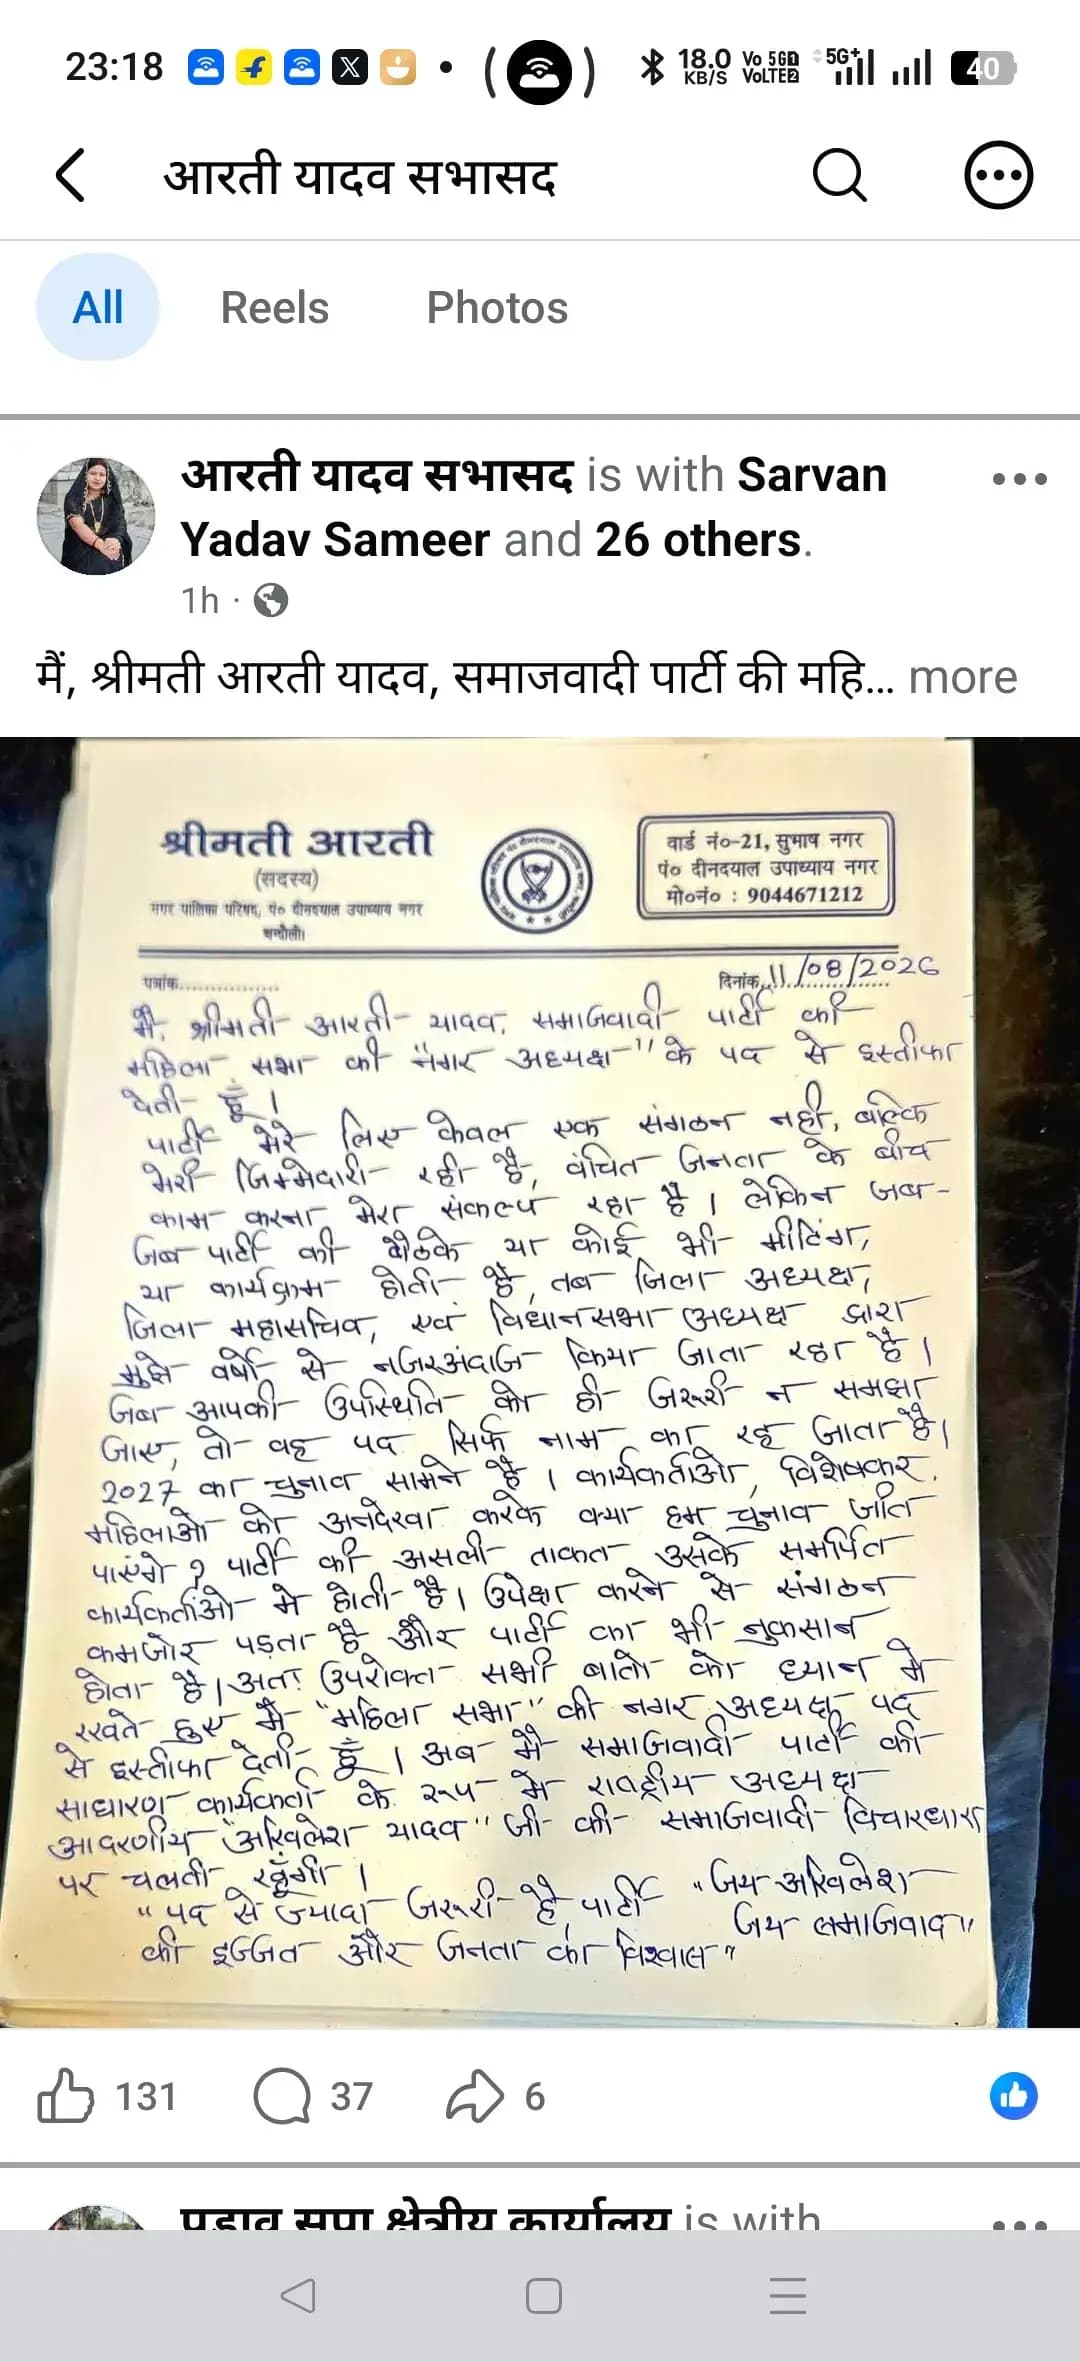 23:18
18.0 KB/S
Vo 5G1 VoLTE2
5G+
40
आरती यादव सभासद
All Reels Photos
आरती यादव सभासद is with Sarvan
Yadav Sameer and 26 others.
1h
मैं, श्रीमती आरती यादव, समाजवादी पार्टी की महि... more
श्रीमती आरती
(सदस्य)
नगर पालिका परिषद, पं० दीनदयाल उपाध्याय नगर
चन्दौली।
वार्ड नं०-21, सुभाष नगर
पं० दीनदयाल उपाध्याय नगर
मो०नं० : 9044671212
पत्रांक................
दिनांक 11/08/2026
मै, श्रीमती आरती यादव, समाजवादी पार्टी की
महिला सभा की "नगर अध्यक्ष" के पद से इस्तीफा
देती हूँ।
पार्टी मेरे लिए केवल एक संगठन नहीं, बल्कि
मेरी जिम्मेदारी रही है, वंचित जनता के बीच
काम करना मेरा संकल्प रहा है। लेकिन जब-
जब पार्टी की बैठके या कोई भी मीटिंग,
या कार्यक्रम होती है, तब जिला अध्यक्ष,
जिला महासचिव, एवं विधानसभा अध्यक्ष द्वारा
मुझे वर्षो से नजरअंदाज किया जाता रहा है।
जब आपकी उपस्थिति को ही जरूरी न समझा
जाए, तो वह पद सिर्फ नाम का रह जाता है।
2027 का चुनाव सामने है। कार्यकर्ताओ, विशेषकर
महिलाओ को अनदेखा करके क्या हम चुनाव जीत
पाएंगे? पार्टी की असली ताकत उसके समर्पित
कार्यकर्ताओ मे होती है। उपेक्षा करने से संगठन
कमजोर पड़ता है और पार्टी का भी नुकसान
होता है। अतः उपरोक्त सभी बातो को ध्यान मे
रखते हुए मैं "महिला सभा" की नगर अध्यक्ष पद
से इस्तीफा देती हूँ। अब मै समाजवादी पार्टी की
साधारण कार्यकर्ता के रूप मे राष्ट्रीय अध्यक्ष
आदरणीय "अखिलेश यादव" जी की समाजवादी विचारधारा
पर चलती रहूँगी।
"पद से ज्यादा जरूरी है पार्टी
की इज्जत और जनता का विश्वास"
"जय अखिलेश
जय समाजवाद"
131 37 6
पड़ाव सपा क्षेत्रीय कार्यालय is with